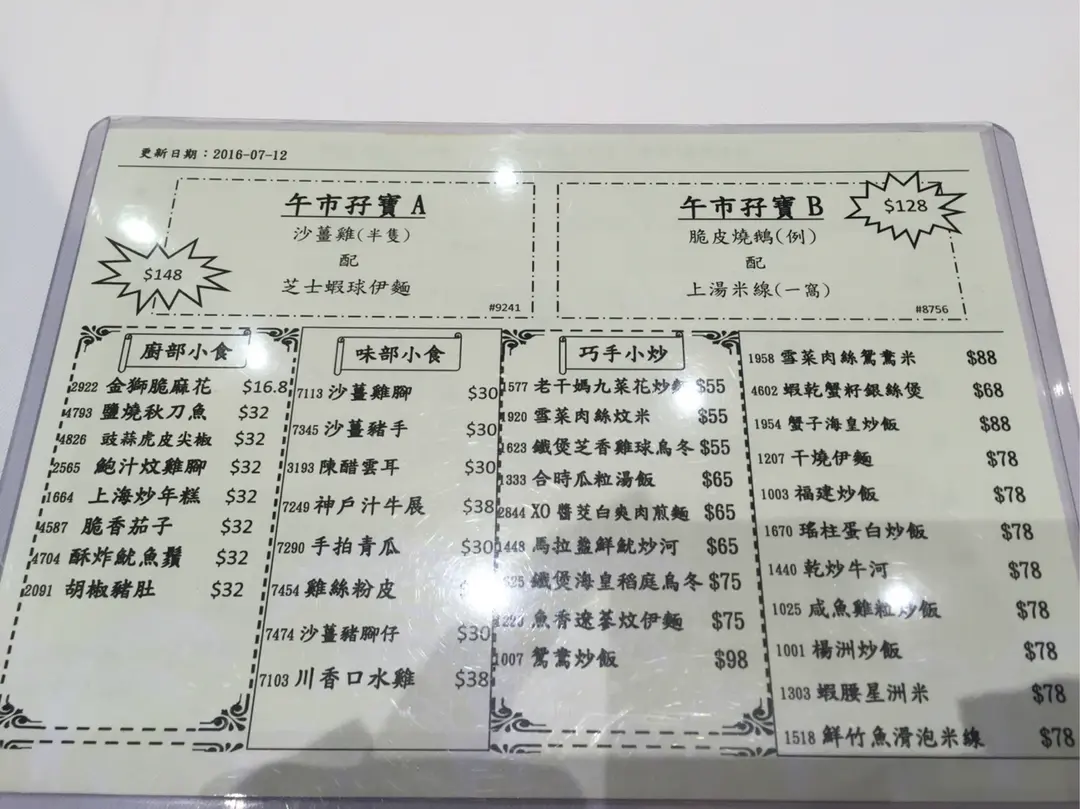 更新日期：2016-07-12
午市孖寶 A
沙薑雞(半隻)
配
芝士蝦球伊麵
$148
#9241
午市孖寶 B
脆皮燒鵝(例)
配
上湯米線(一窩)
$128
#8756
廚部小食
2922 金獅脆麻花 $16.8
4793 鹽燒秋刀魚 $32
4826 豉蒜虎皮尖椒 $32
2565 鮑汁炆雞腳 $32
1664 上海炒年糕 $32
4587 脆香茄子 $32
4704 酥炸魷魚鬚 $32
2091 胡椒豬肚 $32
味部小食
7113 沙薑雞腳 $30
7345 沙薑豬手 $30
3193 陳醋雲耳 $30
7249 神戶汁牛展 $38
7290 手拍青瓜 $30
7454 雞絲粉皮
7474 沙薑豬腳仔 $30
7103 川香口水雞 $38
巧手小炒
1577 老干媽九菜花炒 $55
1920 雪菜肉絲炆米 $55
1623 鐵煲芝香雞球烏冬 $55
1333 合時瓜粒湯飯 $65
2844 XO 醬芠白爽肉煎麵 $65
1448 馬拉盞鮮魷炒河 $65
鐵煲海皇稻庭烏冬 $75
魚香遼蔘炆伊麵 $75
1007 鴛鴦炒飯 $98
1958 雪菜肉絲鴛鴦米 $88
4602 蝦乾蟹籽銀絲煲 $68
1954 蟹子海皇炒飯 $88
1207 干燒伊麵 $78
1003 福建炒飯 $78
1670 瑤柱蛋白炒飯 $78
1440 乾炒牛河 $78
1025 咸魚雞粒炒飯 $78
1001 楊洲炒飯 $78
1303 蝦腰星洲米 $78
1518 鮮竹魚滑泡米線 $78